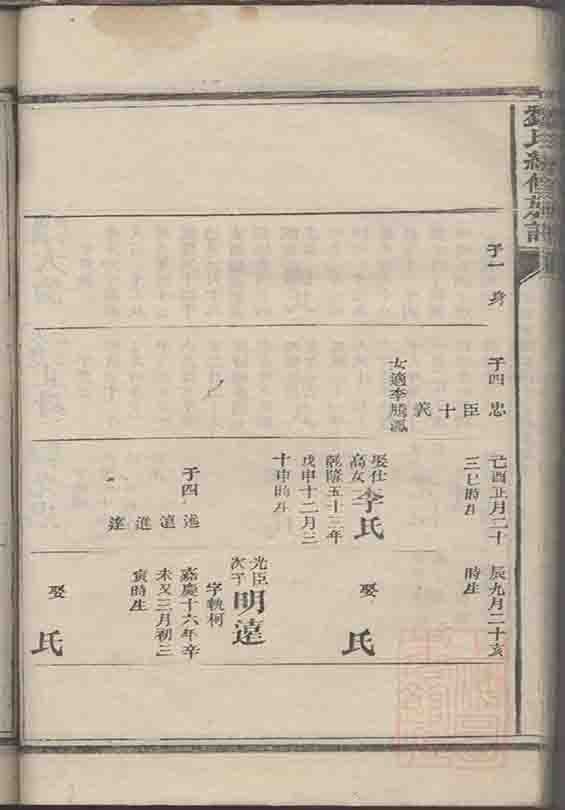 氏續修族譜
子一
身
子四
忠
臣
十
義
女適李騰鳳
己酉正月二十
三巳時生
娶仕
高女
李氏
乾隆五十三年
戊申十二月三
十申時生
子四
遠
進
達
辰九月二十亥
時生
娶
氏
光臣
次子
明遠
字執柯
嘉慶十六年辛
未又三月初三
寅時生
娶
氏